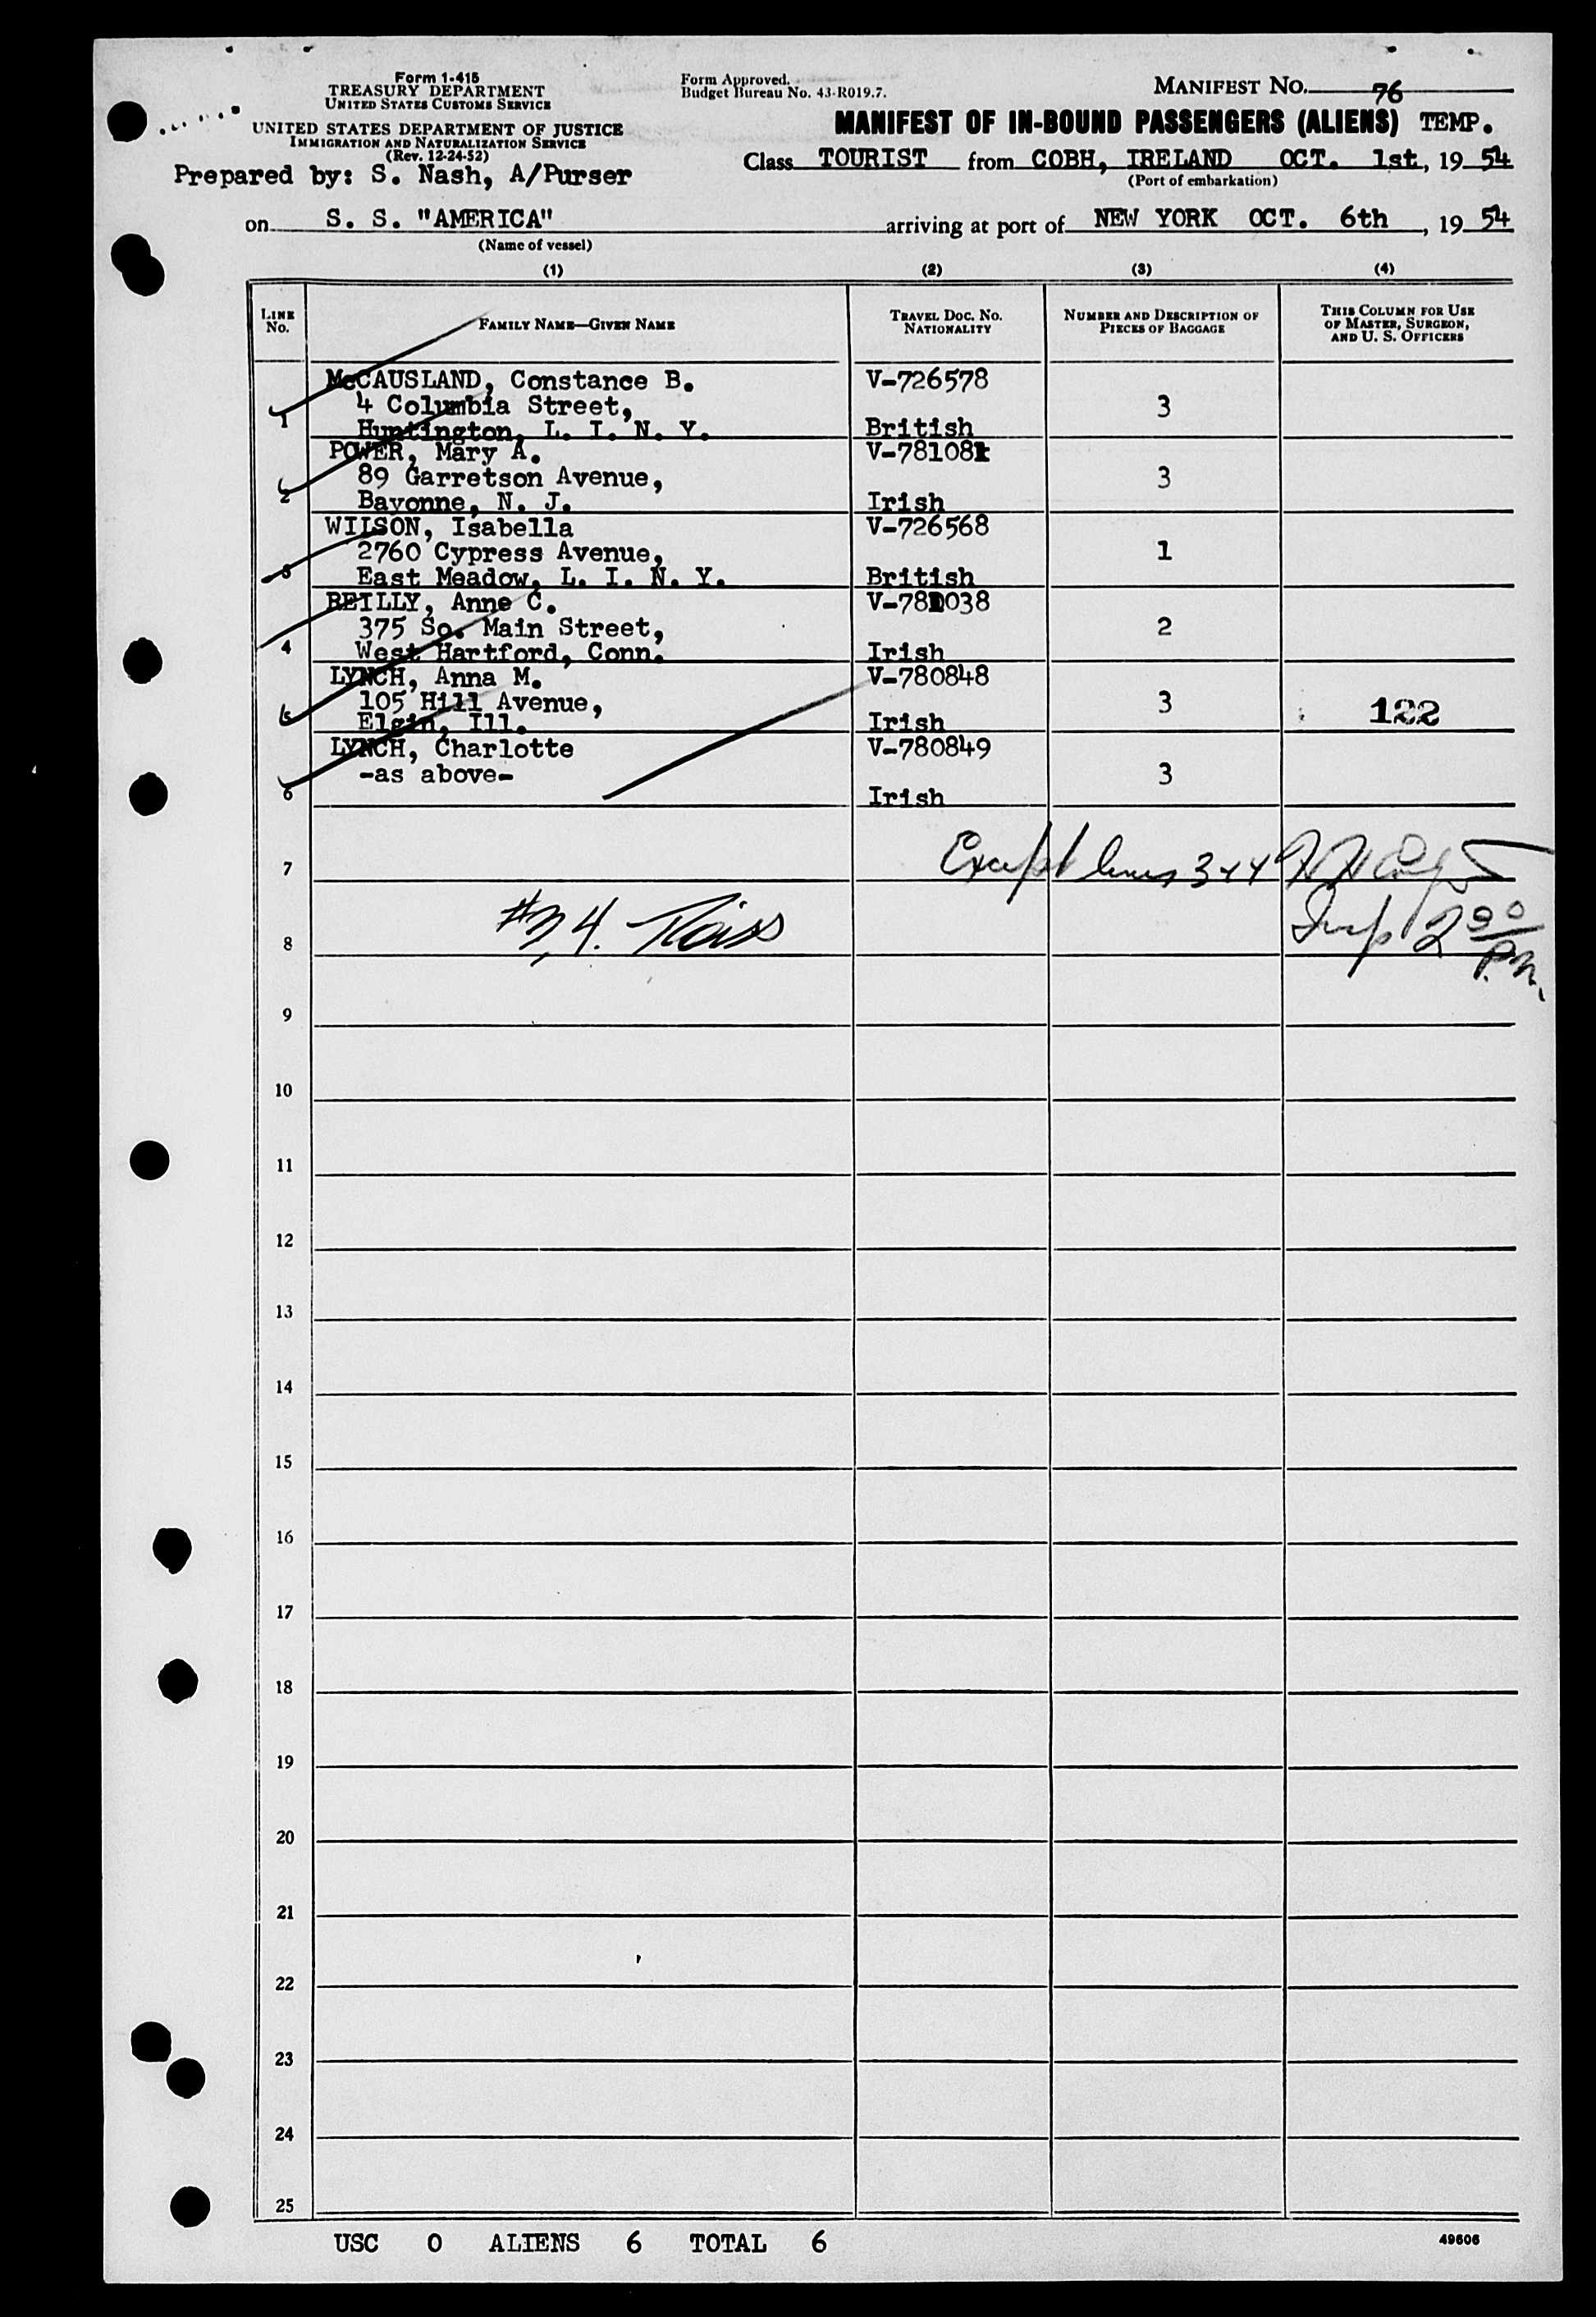 Form 1-415
TREASURY DEPARTMENT
UNITED STATES CUSTOMS SERVICE
UNITED STATES DEPARTMENT OF JUSTICE
IMMIGRATION AND NATURALIZATION SERVICE
(Rev. 12-24-52)
Prepared by: S. Nash, A/Purser
Form Approved.
Budget Bureau No. 43-R019.7.
MANIFEST NO. 76
MANIFEST OF IN-BOUND PASSENGERS (ALIENS) TEMP.
Class TOURIST from COBH, IRELAND OCT. 1st, 19 54
(Port of embarkation)
on S. S. "AMERICA" arriving at port of NEW YORK OCT. 6th, 19 54
(Name of vessel)
(1) (2) (3) (4)
LINE No. FAMILY NAME—GIVEN NAME TRAVEL DOC. NO. NATIONALITY NUMBER AND DESCRIPTION OF PIECES OF BAGGAGE THIS COLUMN FOR USE OF MASTER, SURGEON, AND U. S. OFFICERS
McCAUSLAND, Constance B. V-726578
1 4 Columbia Street, 3
Huntington, L. I. N. Y. British
POWER, Mary A. V-781081
2 89 Garretson Avenue, 3
Bayonne, N. J. Irish
WILSON, Isabella V-726568
3 2760 Cypress Avenue, 1
East Meadow, L. I. N. Y. British
REILLY, Anne C. V-781038
4 375 So. Main Street, 2
West Hartford, Conn. Irish
LYNCH, Anna M. V-780848
5 105 Hill Avenue, 3 122
Elgin, Ill. Irish
LYNCH, Charlotte V-780849
6 -as above- 3
Irish
7 Except lines 3+4
8 #3, 4. Insp 2 30/P.M.
9
10
11
12
13
14
15
16
17
18
19
20
21
22
23
24
25
USC 0 ALIENS 6 TOTAL 6
49606